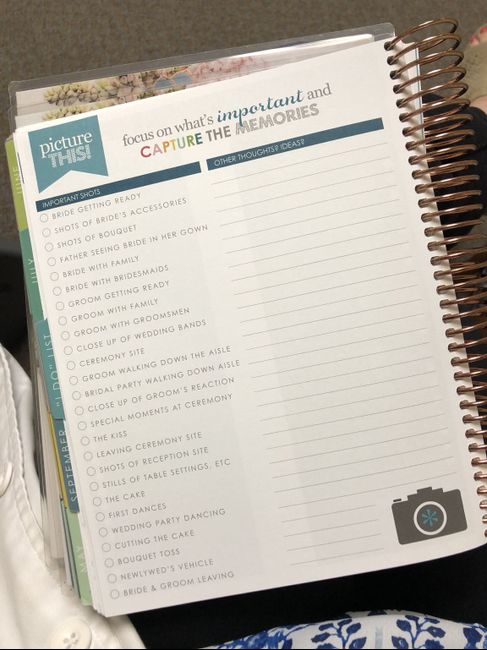 picture
THIS!
focus on what's important and
CAPTURE THE MEMORIES
IMPORTANT SHOTS
BRIDE GETTING READY
SHOTS OF BRIDE'S ACCESSORIES
SHOTS OF BOUQUET
FATHER SEEING BRIDE IN HER GOWN
BRIDE WITH FAMILY
BRIDE WITH BRIDESMAIDS
GROOM GETTING READY
GROOM WITH FAMILY
GROOM WITH GROOMSMEN
CLOSE UP OF WEDDING BANDS
CEREMONY SITE
GROOM WALKING DOWN THE AISLE
BRIDAL PARTY WALKING DOWN AISLE
CLOSE UP OF GROOM'S REACTION
SPECIAL MOMENTS AT CEREMONY
THE KISS
LEAVING CEREMONY SITE
SHOTS OF RECEPTION SITE
STILLS OF TABLE SETTINGS, ETC
THE CAKE
FIRST DANCES
WEDDING PARTY DANCING
CUTTING THE CAKE
BOUQUET TOSS
NEWLYWED'S VEHICLE
BRIDE & GROOM LEAVING
OTHER THOUGHTS? IDEAS?
JUNE
JULY
"I DO" LIST
SEPTEMBER
MAY